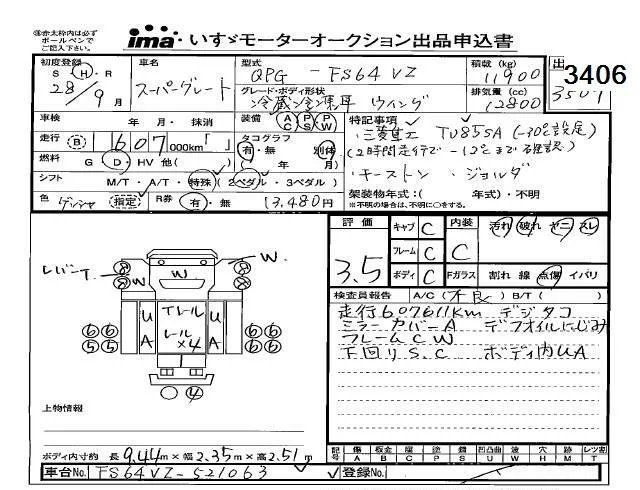 ※赤太枠内は必ず
ボールペンで
ご記入下さい。
ima・いすゞモーターオークション出品申込書
初度登録
S H・R
28/9月
車名
スーパーグレート
型式
QPG - FS64VZ
積載 (kg)
11900
出
3406
3501
グレード・ボディ形状
冷蔵冷凍車 ウイング
排気量 (cc)
12800
車検
年 月・抹消
装備
AC PS PW
特記事項
三菱重工 TU85SA (-30℃設定)
走行 B 607 000km「 」
タコグラフ
有・無 別体
( 年 月)
(2時間走行で -12℃まで確認)
燃料 G D・HV 他( )
・キーストン ・ジョルダ
シフト M/T・A/T・特殊(2ペダル・3ペダル)
架装物年式:( 年式)・不明
※不明の場合は、不明に○をする。
色 指定
R券 有・無 13,480円
評価
3.5
キャブ C
フレーム C
ボディ C
内装
C
汚れ 破れ ヤニ スレ
Fガラス 割れ 線 点傷 イバリ
レバーT.
W.
W
W
U
A
Tレール
レール
×4
U
A
6 6
5 5
6 6
5 5
4
検査員報告 A/C(不良) B/T( )
走行607611Km デジタコ
ミラーカバーA デフオイルにじみ
フレームCW
下回りS.C ボディ内UA
上物情報
ボディ内寸約 長9.44m×幅2.35m×高2.51m
記号 傷 板金 腐 塗 錆 凹凸曲 波 穴 跡 レツ割
A B C P S U W H M T
車台No. FS64VZ-521063
登録No.